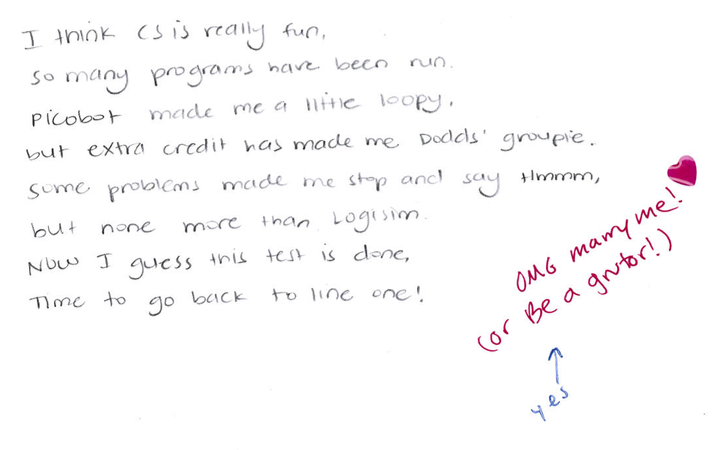 I think CS is really fun,
so many programs have been run.
Picobot made me a little loopy,
but extra credit has made me Dodds' groupie.
Some problems made me stop and say Hmmm,
but none more than Logisim.
Now I guess this test is done,
Time to go back to line one!
OMG marry me!
(or Be a grutor!)
yes